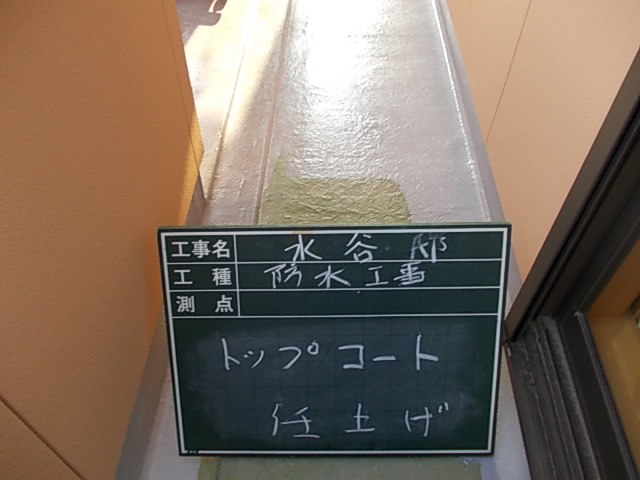 工事名 水谷邸
工種 防水工事
測点
トップコート
仕上げ